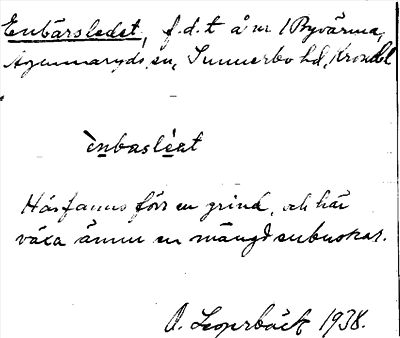 Enbärsledet, f.d.t å nr 1 Byvärma,
Agunnaryds sn, Sunnerbo hd, Kronobl
ènbasléat
Här fanns förr en grind, och här
växa ännu en mängd enbuskar.
O. Leopr­bäck 1938.